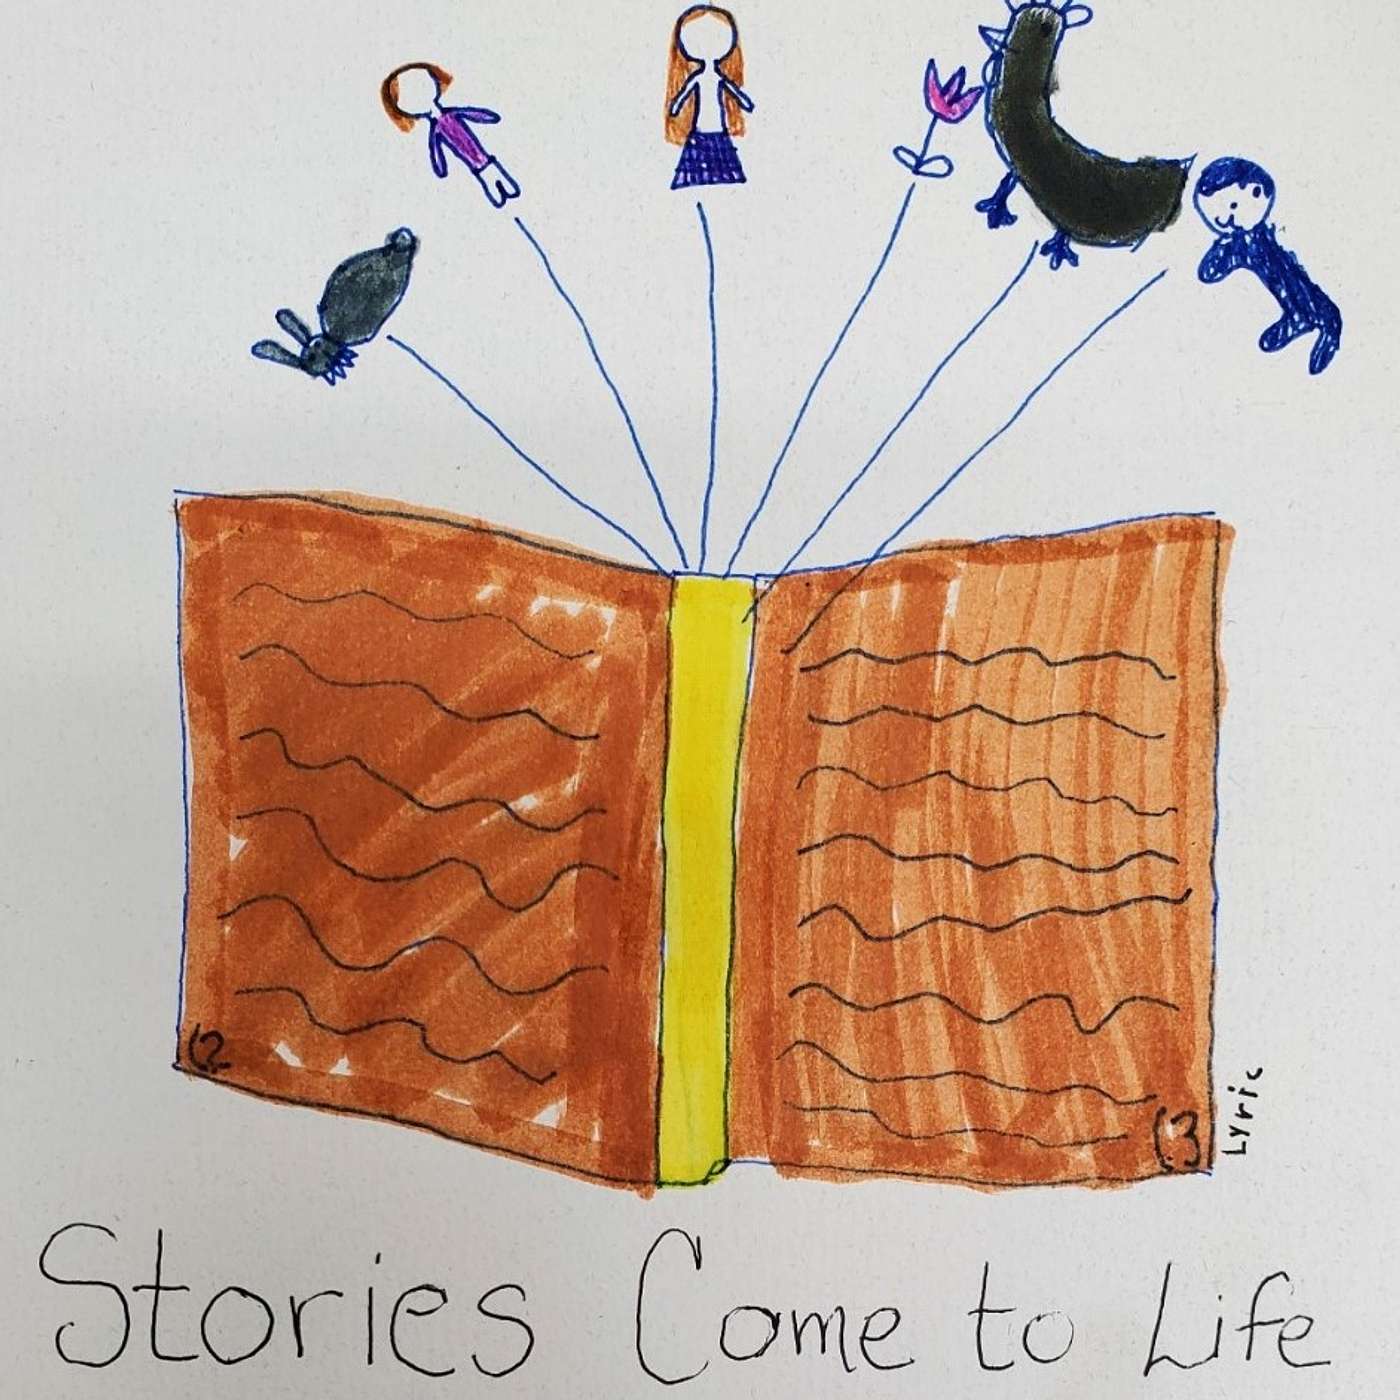 12
13
Lyric
Stories Come to Life